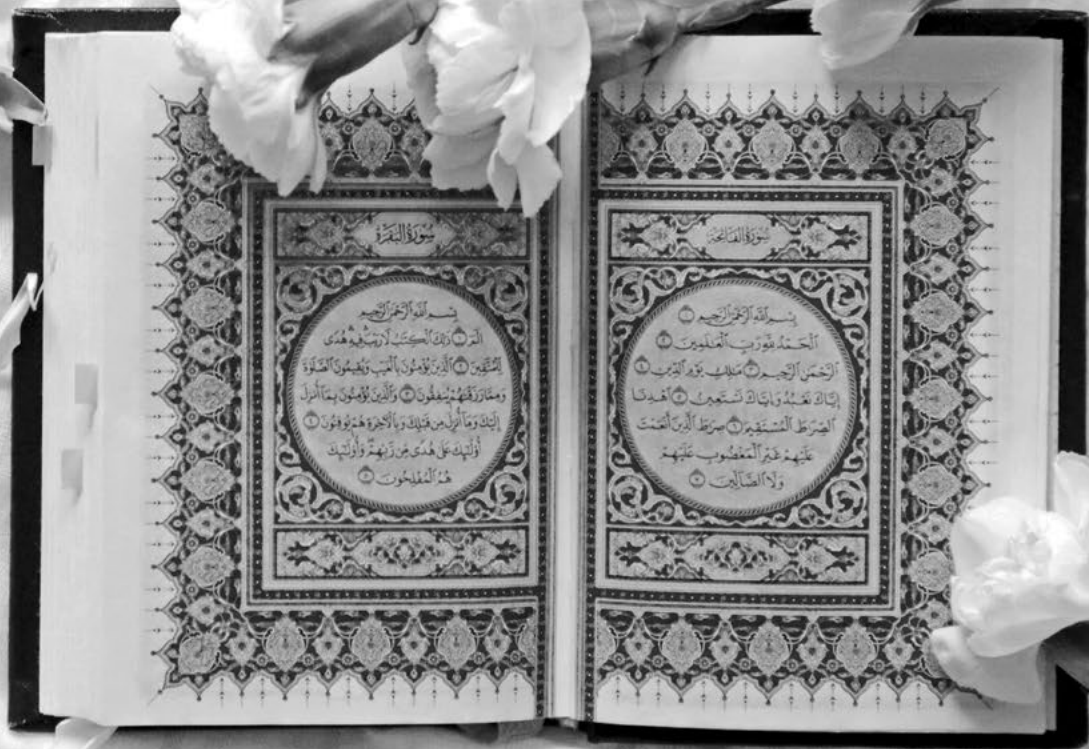 سُورَةُ الفَاتِحَةِ
بِسْمِ ٱللَّهِ ٱلرَّحْمَٰنِ ٱلرَّحِيمِ ١
ٱلْحَمْدُ لِلَّهِ رَبِّ ٱلْعَٰلَمِينَ ٢
ٱلرَّحْمَٰنِ ٱلرَّحِيمِ ٣ مَٰلِكِ يَوْمِ ٱلدِّينِ ٤
إِيَّاكَ نَعْبُدُ وَإِيَّاكَ نَسْتَعِينُ ٥ ٱهْدِنَا
ٱلصِّرَٰطَ ٱلْمُسْتَقِيمَ ٦ صِرَٰطَ ٱلَّذِينَ أَنْعَمْتَ
عَلَيْهِمْ غَيْرِ ٱلْمَغْضُوبِ عَلَيْهِمْ
وَلَا ٱلضَّآلِّينَ ٧
سُورَةُ البَقَرَةِ
بِسْمِ ٱللَّهِ ٱلرَّحْمَٰنِ ٱلرَّحِيمِ
الٓمٓ ١ ذَٰلِكَ ٱلْكِتَٰبُ لَا رَيْبَ ۛ فِيهِ ۛ هُدًى
لِّلْمُتَّقِينَ ٢ ٱلَّذِينَ يُؤْمِنُونَ بِٱلْغَيْبِ وَيُقِيمُونَ ٱلصَّلَوٰةَ
وَمِمَّا رَزَقْنَٰهُمْ يُنفِقُونَ ٣ وَٱلَّذِينَ يُؤْمِنُونَ بِمَآ أُنزِلَ
إِلَيْكَ وَمَآ أُنزِلَ مِن قَبْلِكَ وَبِٱلْءَاخِرَةِ هُمْ يُوقِنُونَ ٤
أُو۟لَٰٓئِكَ عَلَىٰ هُدًى مِّن رَّبِّهِمْ ۖ وَأُو۟لَٰٓئِكَ
هُمُ ٱلْمُفْلِحُونَ ٥